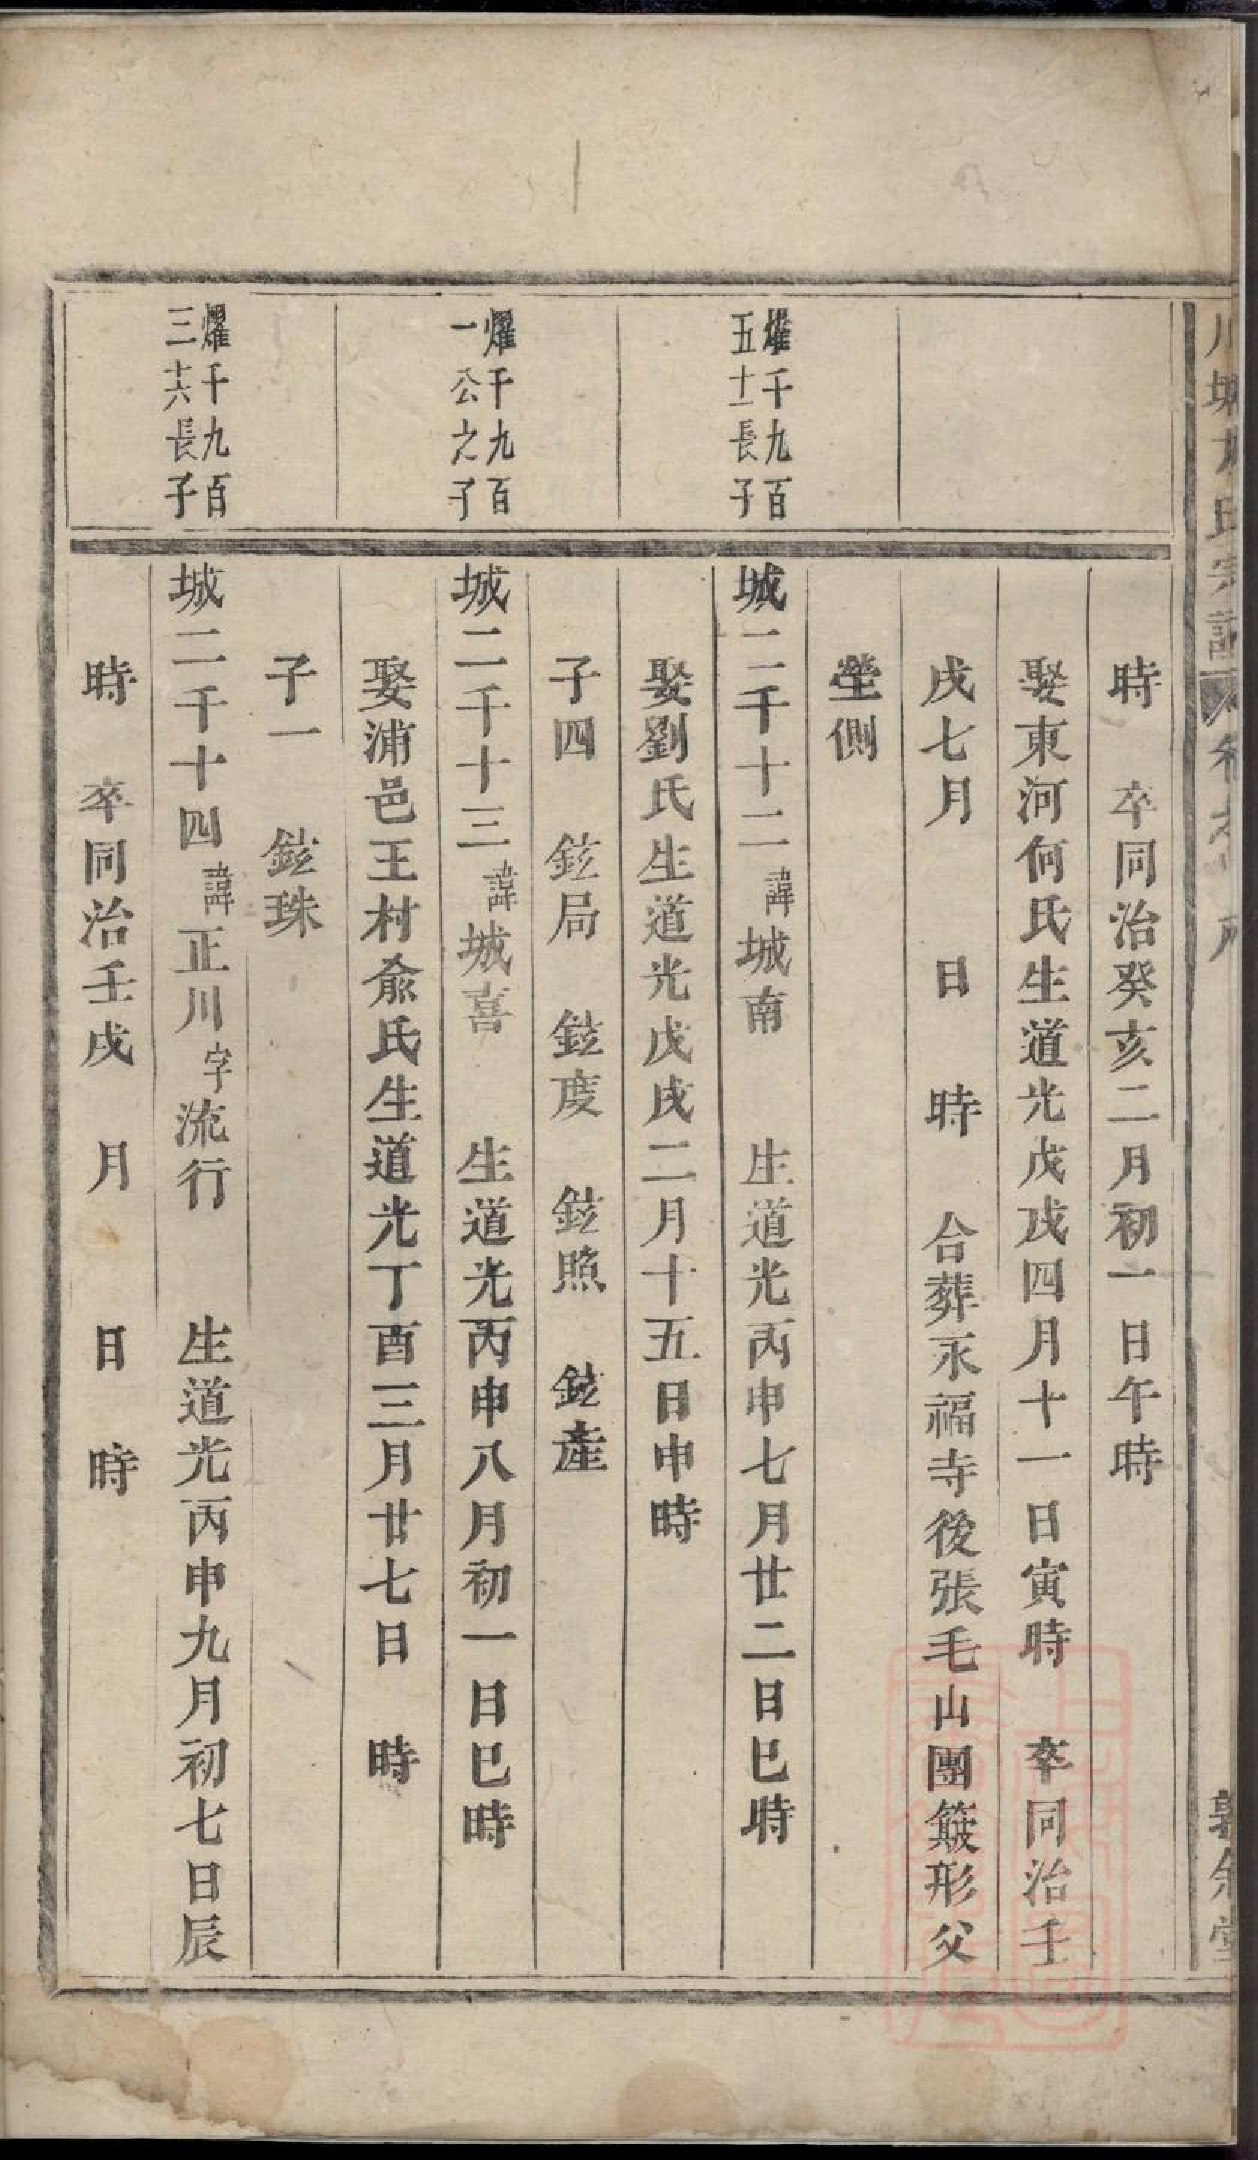 時　卒同治癸亥二月初一日午時
娶東河何氏生道光戊戌四月十一日寅時　卒同治壬
戌七月　日　時　合葬永福寺後張毛山團簸形父
塋側
燿千九百
五十一長子
城二千十二諱城南　生道光丙申七月廿二日巳時
娶劉氏生道光戊戌二月十五日申時
子四　鉉局　鉉度　鉉照　鉉產
燿千九百
一公之子
城二千十三諱城喜　生道光丙申八月初一日巳時
娶浦邑王村俞氏生道光丁酉三月廿七日　時
子一　鉉珠
燿千九百
三十六長子
城二千十四諱正川字流行　生道光丙申九月初七日辰
時　卒同治壬戌　月　日　時